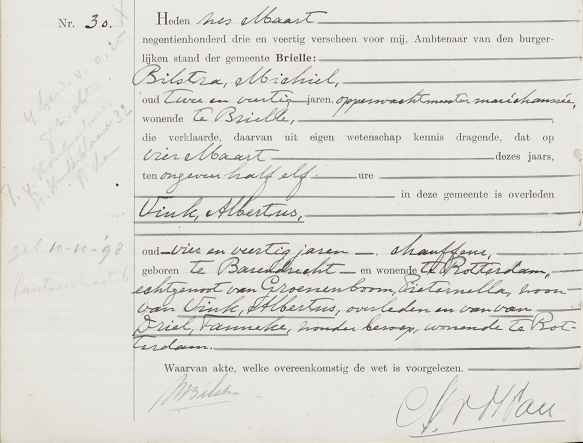 Nr. 30.
Heden zes Maart
negentienhonderd drie en veertig verscheen voor mij, Ambtenaar van den burger-
lijken stand der gemeente Brielle:
Bilstra, Michiel,
oud twee en veertig jaren, opperwachtmeester maréchaussée,
wonende te Brielle,
die verklaarde, daarvan uit eigen wetenschap kennis dragende, dat op
vier Maart dezes jaars,
ten ongeveer half elf ure
in deze gemeente is overleden
Vink, Albertus,
oud vier en veertig jaren, chauffeur,
geboren te Barendrecht en wonende te Rotterdam,
echtgenoot van Groenenboom, Pieternella, zoon
van Vink, Albertus, overleden en van van
Driel, Janneke, zonder beroep, wonende te Rot-
terdam.
Waarvan akte, welke overeenkomstig de wet is voorgelezen.
MBilstra
geb. 10-10-'98